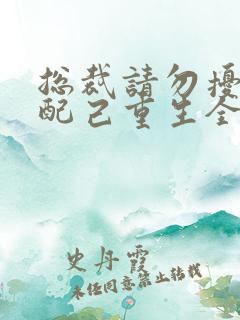 总裁請勿擾
配己重生全
史丹霞
未经同意禁止转载